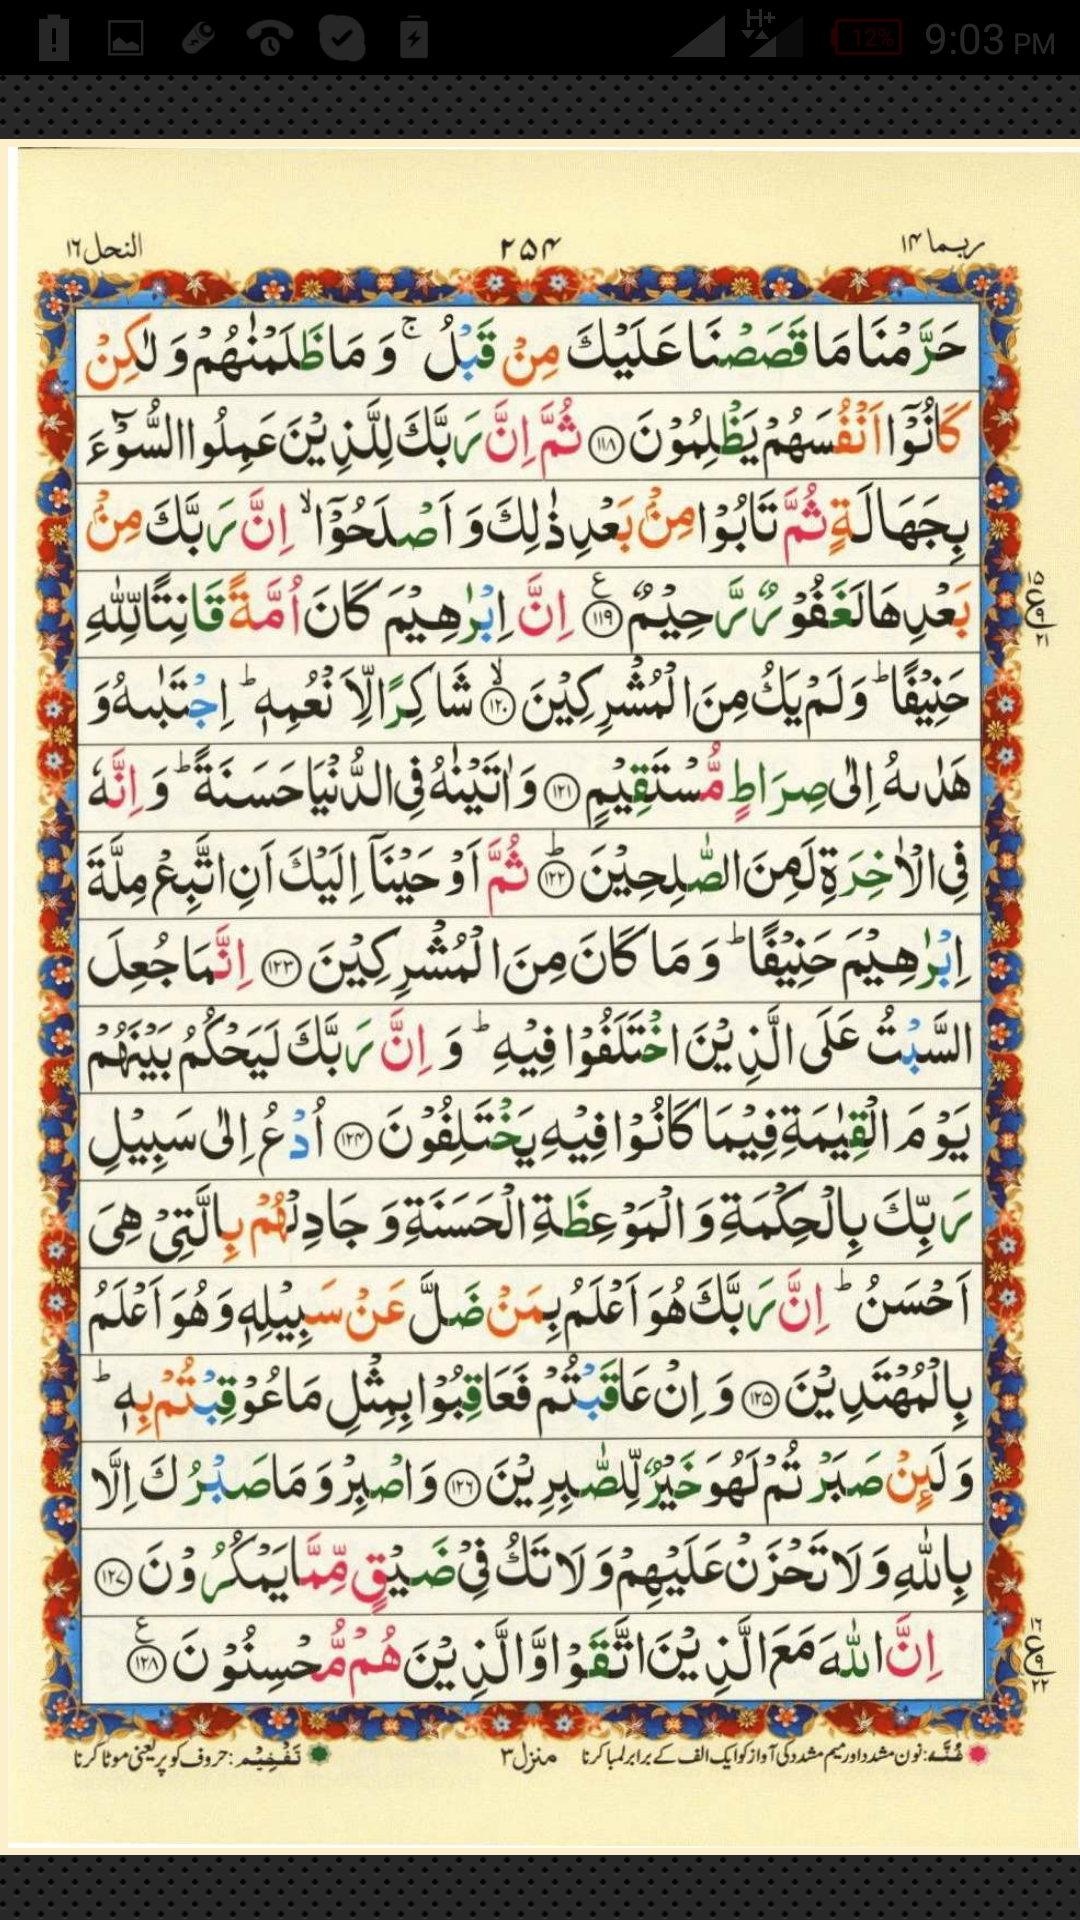 12% 9:03 PM
H+
ربما ۱۴ ۲۵۴ النحل ۱۶
حَرَّمْنَا مَا قَصَصْنَا عَلَيْكَ مِنْ قَبْلُ ۚ وَ مَا ظَلَمْنٰهُمْ وَ لٰكِنْ
كَانُوْۤا اَنْفُسَهُمْ يَظْلِمُوْنَ ۝۱۱۸ ثُمَّ اِنَّ رَبَّكَ لِلَّذِيْنَ عَمِلُوا السُّوْٓءَ
بِجَهَالَةٍ ثُمَّ تَابُوْا مِنْۢ بَعْدِ ذٰلِكَ وَ اَصْلَحُوْۤا ۙ اِنَّ رَبَّكَ مِنْۢ
بَعْدِهَا لَغَفُوْرٌ رَّحِيْمٌ ۝۱۱۹ ع اِنَّ اِبْرٰهِيْمَ كَانَ اُمَّةً قَانِتًا لِّلّٰهِ
۱۵ ع ۹ ۲۱
حَنِيْفًا ؕ وَ لَمْ يَكُ مِنَ الْمُشْرِكِيْنَ ۝۱۲۰ ۙ شَاكِرًا لِّاَنْعُمِهٖ ؕ اِجْتَبٰىهُ وَ
هَدٰىهُ اِلٰى صِرَاطٍ مُّسْتَقِيْمٍ ۝۱۲۱ وَ اٰتَيْنٰهُ فِي الدُّنْيَا حَسَنَةً ؕ وَ اِنَّهٗ
فِي الْاٰخِرَةِ لَمِنَ الصّٰلِحِيْنَ ۝۱۲۲ ؕ ثُمَّ اَوْحَيْنَاۤ اِلَيْكَ اَنِ اتَّبِعْ مِلَّةَ
اِبْرٰهِيْمَ حَنِيْفًا ؕ وَ مَا كَانَ مِنَ الْمُشْرِكِيْنَ ۝۱۲۳ اِنَّمَا جُعِلَ
السَّبْتُ عَلَى الَّذِيْنَ اخْتَلَفُوْا فِيْهِ ؕ وَ اِنَّ رَبَّكَ لَيَحْكُمُ بَيْنَهُمْ
يَوْمَ الْقِيٰمَةِ فِيْمَا كَانُوْا فِيْهِ يَخْتَلِفُوْنَ ۝۱۲۴ اُدْعُ اِلٰى سَبِيْلِ
رَبِّكَ بِالْحِكْمَةِ وَ الْمَوْعِظَةِ الْحَسَنَةِ وَ جَادِلْهُمْ بِالَّتِيْ هِيَ
اَحْسَنُ ؕ اِنَّ رَبَّكَ هُوَ اَعْلَمُ بِمَنْ ضَلَّ عَنْ سَبِيْلِهٖ وَ هُوَ اَعْلَمُ
بِالْمُهْتَدِيْنَ ۝۱۲۵ وَ اِنْ عَاقَبْتُمْ فَعَاقِبُوْا بِمِثْلِ مَا عُوْقِبْتُمْ بِهٖ ؕ
وَ لَئِنْ صَبَرْتُمْ لَهُوَ خَيْرٌ لِّلصّٰبِرِيْنَ ۝۱۲۶ وَ اصْبِرْ وَ مَا صَبْرُكَ اِلَّا
بِاللّٰهِ وَ لَا تَحْزَنْ عَلَيْهِمْ وَ لَا تَكُ فِيْ ضَيْقٍ مِّمَّا يَمْكُرُوْنَ ۝۱۲۷
اِنَّ اللّٰهَ مَعَ الَّذِيْنَ اتَّقَوْا وَّ الَّذِيْنَ هُمْ مُّحْسِنُوْنَ ۝۱۲۸ ع
۱۶ ع ۹ ۲۲
غُنَّہ: نون مشدد اور میم مشدد کی آواز کو ایک الف کے برابر لمبا کرنا منزل ۳ تَفْخِیْم: حروف کو پر یعنی موٹا کرنا